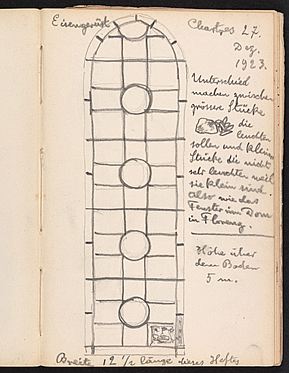 Eisengerüst
Chartres 27.
Dez.
1923.
Unterschied
machen zwischen
grössere Stücke
die
leuchten
sollen und kleine
Stücke die nicht
sehr leuchten weil
sie klein sind
also wie das
Fenster im Dom
in Florenz.
Höhe über
dem Boden
5 m.
Breite 12 1/2 länge dieses Heftes